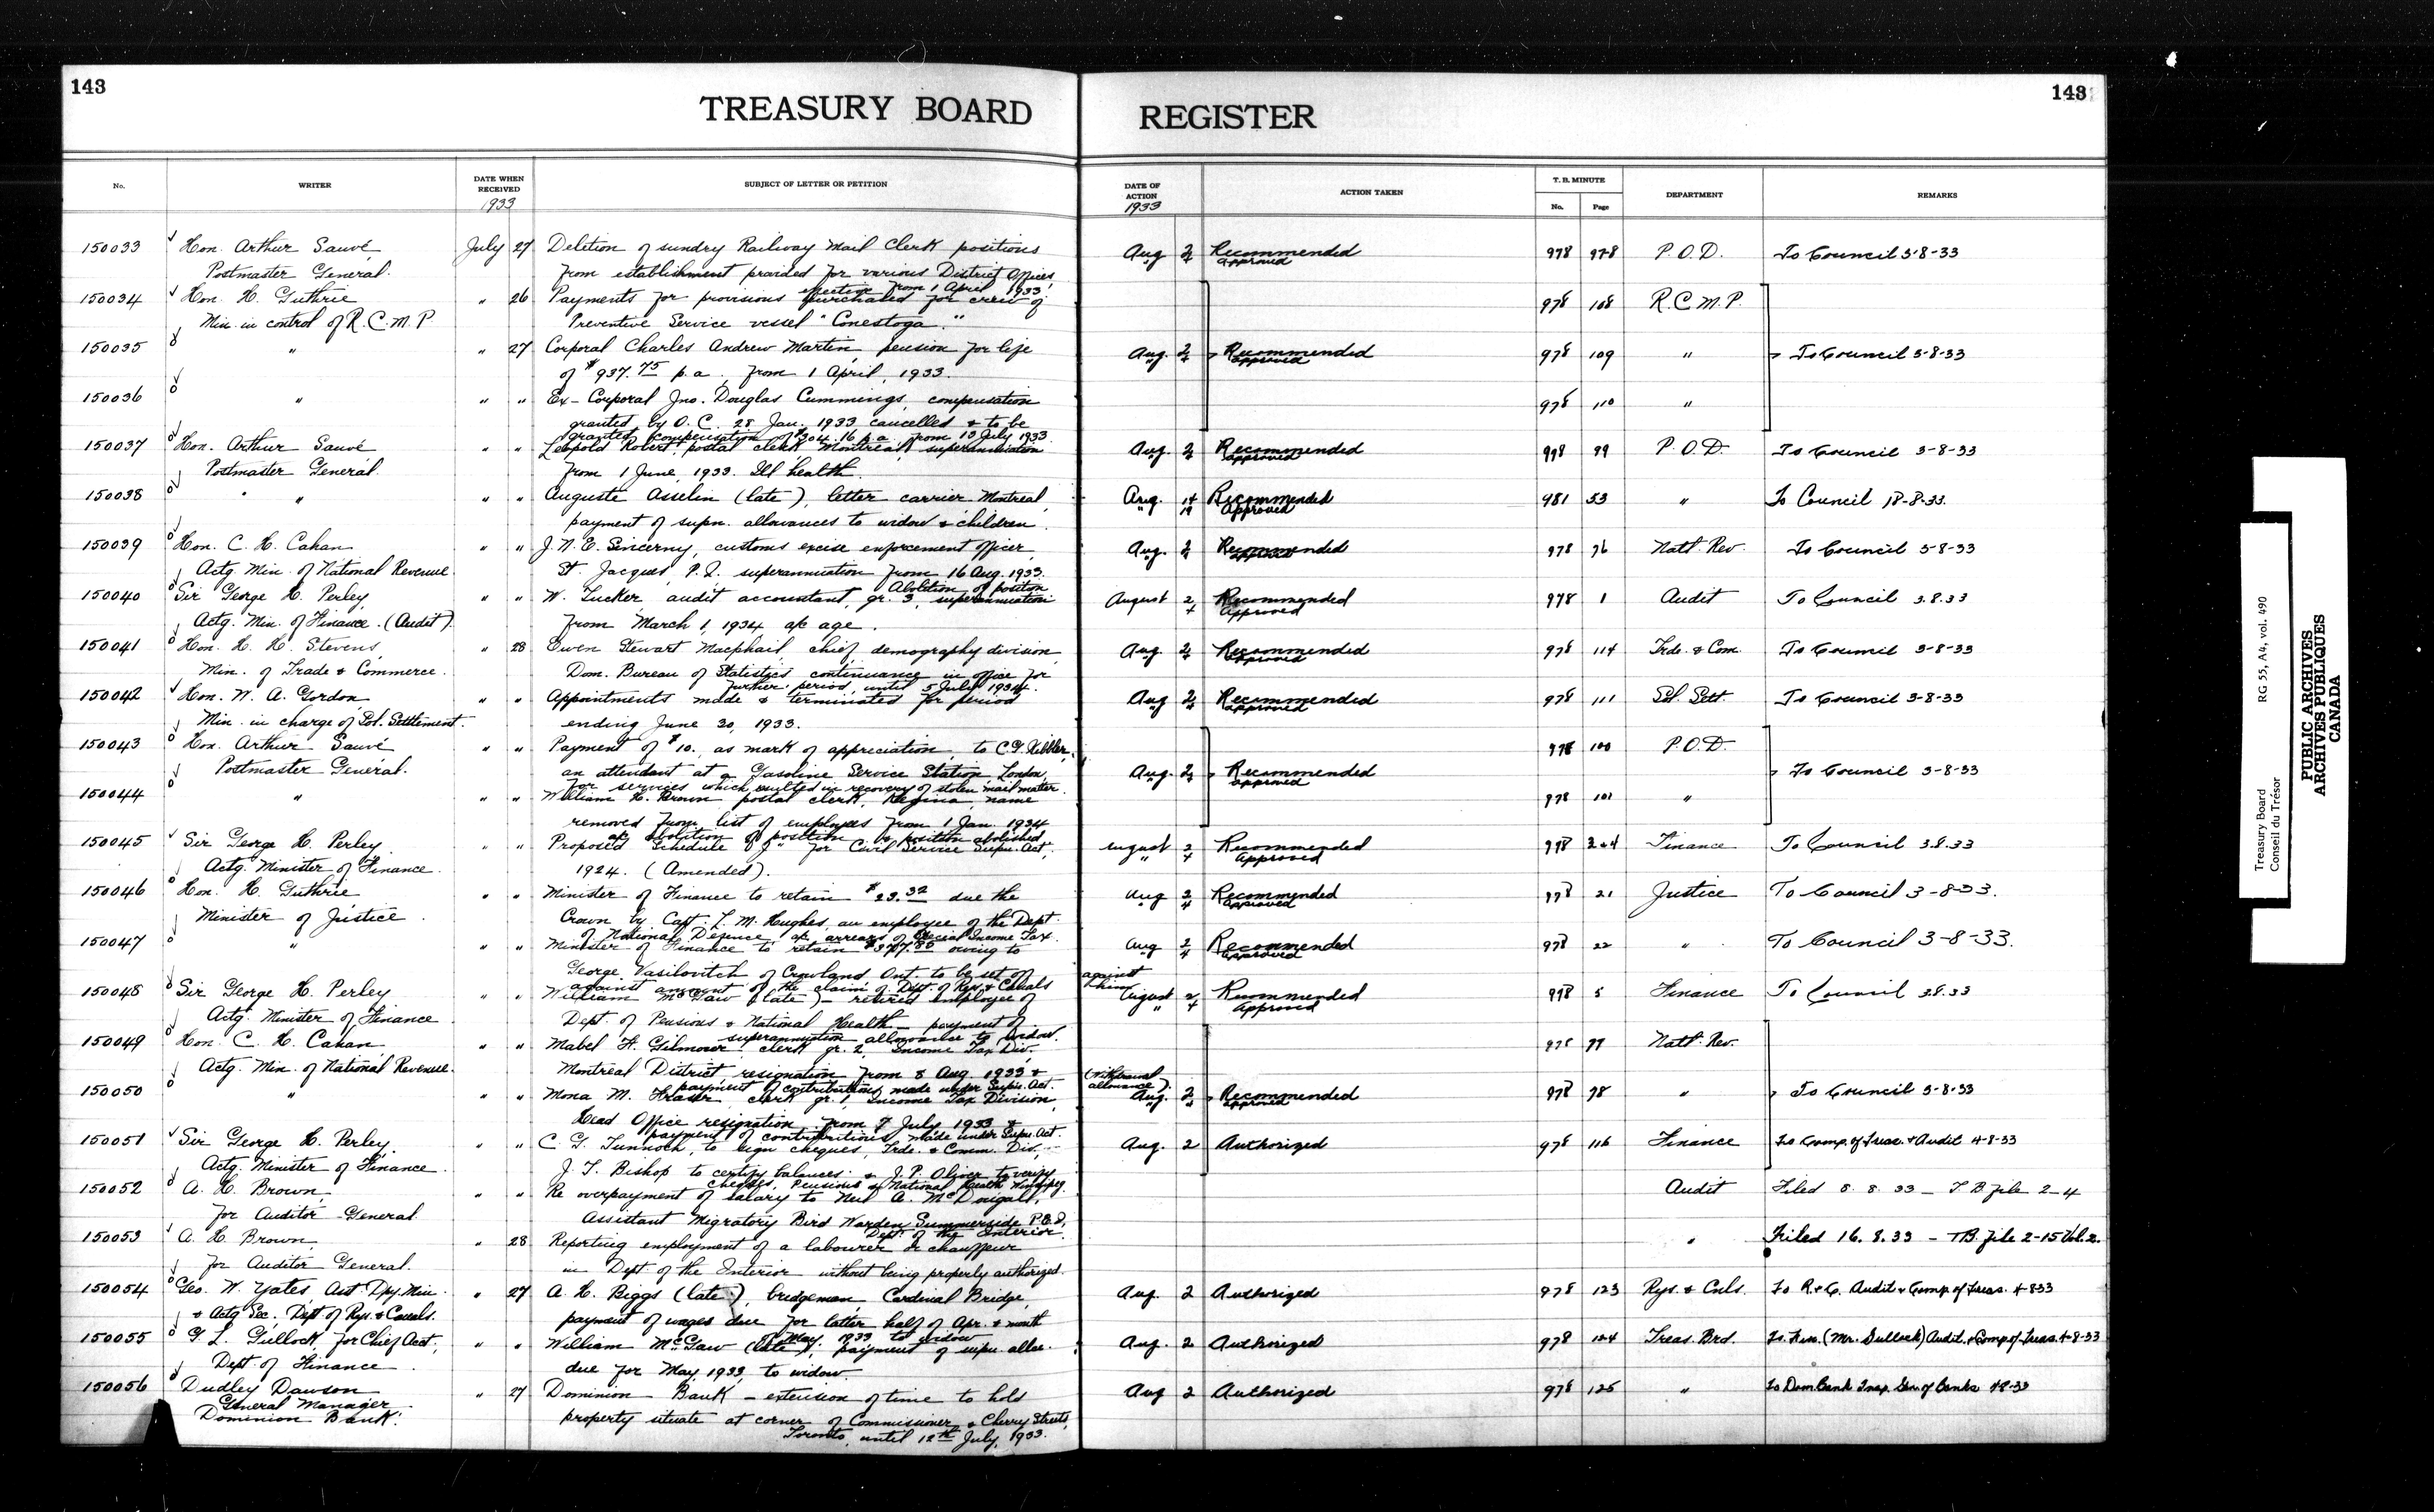 143
TREASURY BOARD
REGISTER
143
No.
WRITER
DATE WHEN RECEIVED
1933
SUBJECT OF LETTER OR PETITION
DATE OF ACTION
1933
ACTION TAKEN
T. B. MINUTE
No.
Page
DEPARTMENT
REMARKS
150033 Hon. Arthur Sauvé, July 27 Deletion of sundry Railway Mail Clerk positions Aug 2 Recommended 978 P.O.D. To Council 3-8-33
Postmaster General. from establishment provided for various District Offices, " 4 approved
effective from 1 April 1933.
150034 Hon. H. Guthrie " 26 Payments for provisions purchased for crew of 978 108 R.C.M.P.
Min. in control of R.C.M.P. Preventive Service vessel "Conestoga."
150035 " " 27 Corporal Charles Andrew Martin, pension for life Aug. 2 Recommended 978 109 " To Council 3-8-33
of $937.75 p.a. from 1 April, 1933. " 4 approved
150036 " " " Ex-Corporal Jno. Douglas Cummings, compensation 978 110 "
granted by O.C. 28 Jan. 1933 cancelled & to be
granted compensation of $304.16 p.a. from 13 July 1933.
150037 Hon. Arthur Sauvé " " Leopold Robert, postal clerk, Montreal, superannuation Aug. 2 Recommended 978 99 P.O.D. To Council 3-8-33
Postmaster General. from 1 June, 1933. Ill health. " 4 approved
150038 " " " Auguste Asselin (late), letter carrier Montreal, Aug. 14 Recommended 981 53 " To Council 18-8-33.
payment of supn. allowances to widow & children. " 19 Approved
150039 Hon. C. H. Cahan " " J. N. E. Sincerny, customs excise enforcement officer, Aug. 2 Recommended 978 76 Natl. Rev. To Council 3-8-33
Actg. Min. of National Revenue. St. Jacques, P.Q. superannuation from 16 Aug. 1933. " 4 approved
Abolition of position
150040 Sir George H. Perley, " " W. Tucker audit accountant, gr. 3, superannuation August 2 Recommended 978 1 Audit To Council 3.8.33
Actg. Min. of Finance. (Audit). from March 1, 1934 a/c age. " 4 Approved
150041 Hon. H. H. Stevens, " 28 Owen Stewart Macphail chief, demography division, Aug 2 Recommended 978 114 Trde. & Com. To Council 3-8-33
Min. of Trade & Commerce. Dom. Bureau of Statistics continuance in office for " 4 approved
further period, until 5 July 1934.
150042 Hon. W. A. Gordon, " " Appointments made & terminated for period Aug 2 Recommended 978 111 Sol. Sett. To Council 3-8-33
Min. in charge of Sol. Settlement ending June 30, 1933. " 4 approved
150043 Hon. Arthur Sauvé " " Payment of $10. as mark of appreciation, to C. G. Kibbler, 978 100 P.O.D.
Postmaster General. an attendant at a Gasoline Service Station, London, Aug. 2 Recommended To Council 3-8-33
for services which resulted in recovery of stolen mail matter. " 4 approved
150044 " " " William H. Brown postal clerk, Regina, name 978 101 "
removed from list of employees from 1 Jan. 1934
a/c abolition of position is position abolished.
150045 Sir George H. Perley. " " Proposed Schedule "J" for Civil Service Supn. Act, August 2 Recommended 978 204 Finance To Council 3.8.33
Actg. Minister of Finance. 1924. (Amended). " 4 Approved
150046 Hon. H. Guthrie " " Minister of Finance to retain $23.32 due the Aug 2 Recommended 978 21 Justice To Council 3-8-33.
Minister of Justice. Crown by Capt. L. M. Hughes, an employee of the Dept. " 4 approved
of National Defence, a/c arrears of Special Income Tax.
150047 " " " Minister of Finance to retain $377.85 owing to Aug 2 Recommended 978 22 " To Council 3-8-33.
George Vasilovitch of Crowland Ont. to be set off " 4 approved
against amount of the claim of Dept. of Rys. & Canals against him
150048 Sir George H. Perley " " William McGaw (late) - retired employee of August 2 Recommended 978 5 Finance To Council 3.8.33
Actg. Minister of Finance Dept. of Pensions & National Health - payment of " 4 Approved
superannuation allowance to widow.
150049 Hon. C. H. Cahan " " Mabel H. Gilmour, clerk gr. 2, Income Tax Div. 978 77 Natl. Rev.
Actg. Min. of National Revenue. Montreal District resignation from 8 Aug. 1933 &
payment of contributions made under Supn. Act. (withdrawal allowance).
150050 " " " Mona M. Fraser, clerk gr. 1, Income Tax Division, Aug. 2 Recommended 978 78 " To Council 3-8-33
Head Office resignation from 7 July 1933 & " 4 approved
payment of contributions made under Supn. Act.
150051 Sir George H. Perley, " " C. G. Tunnoch, to sign cheques, Trde. & Comm. Div., Aug. 2 Authorized 978 116 Finance To Comp. of Treas. & Audit 4-8-33
Actg. Minister of Finance. J. T. Bishop to certify balances & J. P. Oliver to verify
cheques, Pensions & National Health Winnipeg.
150052 A. H. Brown, " " Re overpayment of salary to Neil A. McDougall, Audit Filed 8. 8. 33 - T B file 2-4
for Auditor General. Assistant Migratory Bird Warden, Summerside P.E.I.
Dept. of the Interior.
150053 A. H. Brown, " 28 Reporting employment of a labourer & chauffeur " Filed 16. 8. 33 - TB. file 2-15 Vol. 2.
for Auditor General. in Dept. of the Interior without being properly authorized.
150054 Geo. W. Yates, Asst. Dpy. Min. " 27 A. H. Biggs (late), bridgeman, Cardinal Bridge, Aug. 2 Authorized 978 123 Rys. & Cnls. To R. & C. Audit & Comp. of Treas. 4-8-33
& Actg. Sec. Dept. of Rys. & Canals. payment of wages due for latter half of Apr. & month
of May, 1933 to widow
150055 G. L. Gullock, for Chief Acct., " " William McGaw (late), payment of supn. allce. Aug. 2 Authorized 978 124 Treas. Brd. To Fin. (Mr. Gullock) Audit. & Comp. of Treas. 4-8-33
Dept. of Finance. due for May, 1933, to widow.
150056 Dudley Dawson " 27 Dominion Bank - extension of time to hold Aug 2 Authorized 978 125 " To Dom Bank Insp. Gen. of Banks 4-8-33
General Manager property situate at corner of Commissioner & Cherry Streets,
Dominion Bank. Toronto, until 12th July, 1933.
Treasury Board
Conseil du Trésor
RG 55, A4, vol. 490
PUBLIC ARCHIVES
ARCHIVES PUBLIQUES
CANADA